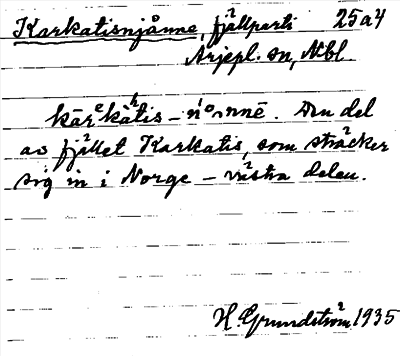 Karkatisnjånne, fjällparti 25a4
Arjepl. sn, Nbl.
kārᵉkàʰtis-nὀnnē. Den del
av fjället Karkatis, som sträcker
sig in i Norge – västra delen.
H. Grundström 1935